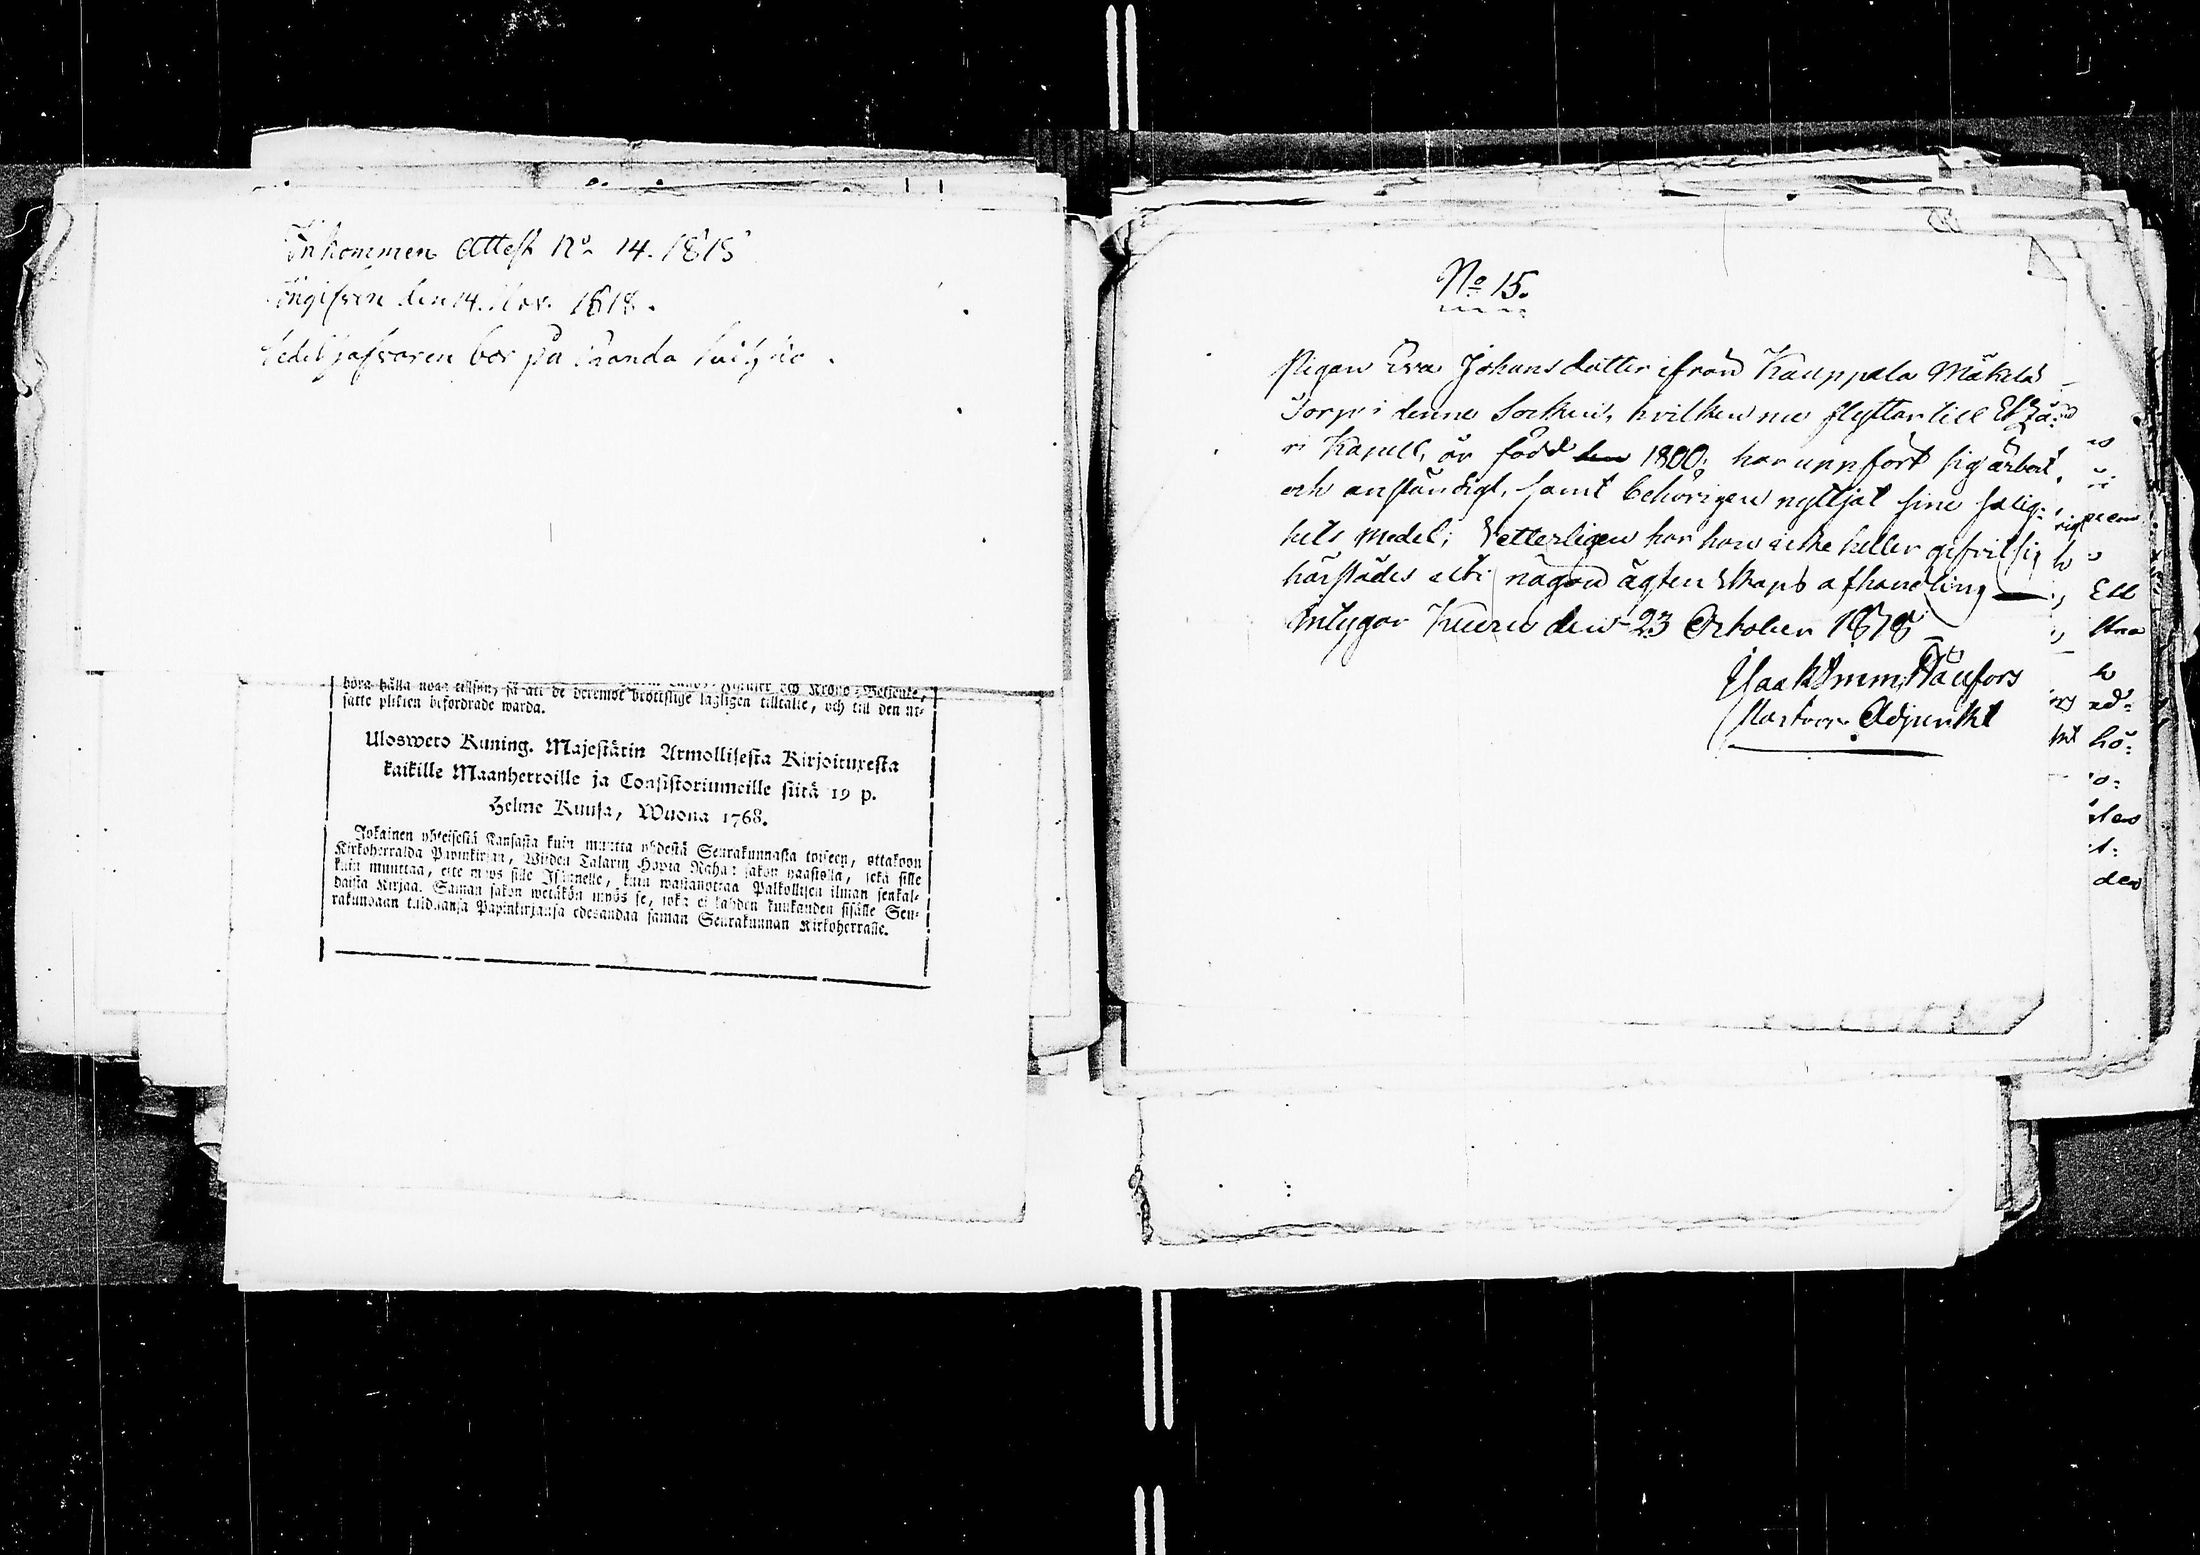 Inkommen Attest No 14. 1818
Ingifven den 14. Nov. 1818.
bor på
böra hålla noga tillsyn, så att de deremot brottslige lagligen tilltalte, och till den ut-
satte plikten befordrade warda.
Uloswero Kuning. Majestätin Armollisesta Kirjoituxesta
kaikille Maanherroille ja Consistoriumeille siitä 19 p.
Helme Kuusa, Wuona 1768.
Jokainen yhteisestä Kansasta kuin muutta yhdestä Seurakunnasta toiseen, ottakoon
Kirkoherralda Papinkirjan, Wiiden Talarin Hopia Raha: sakon haastolla, sekä sille
kuin muuttaa, ette myös sille Isännelle, kuin wastanottaa Palkollisen ilman senkal-
daista Kirjaa. Saman sakon wetäkön myös se, joka ei kahden kuukauden sisälle Seu-
rakundaan tulduansa Papinkirjansa edesandaa saman Seurakunnan Kirkoherralle.
No 15.
Pigan Eva Johansdotter ifrån Kauppala Mäkelä
Torp i denne Socken, hvilken nu flyttar till Etzä-
ri Kapell, är född den 1800, har uppfört sig ärbart
och anständigt, samt behörigen nyttjat sine salig-
hets medel; Vetterligen har hon icke heller gifvit sig
härstädes uti någon ägtenskaps afhandling
Intygar Kuru den 23 October 1818
Isaak Imm.
Pastors Adjunkt